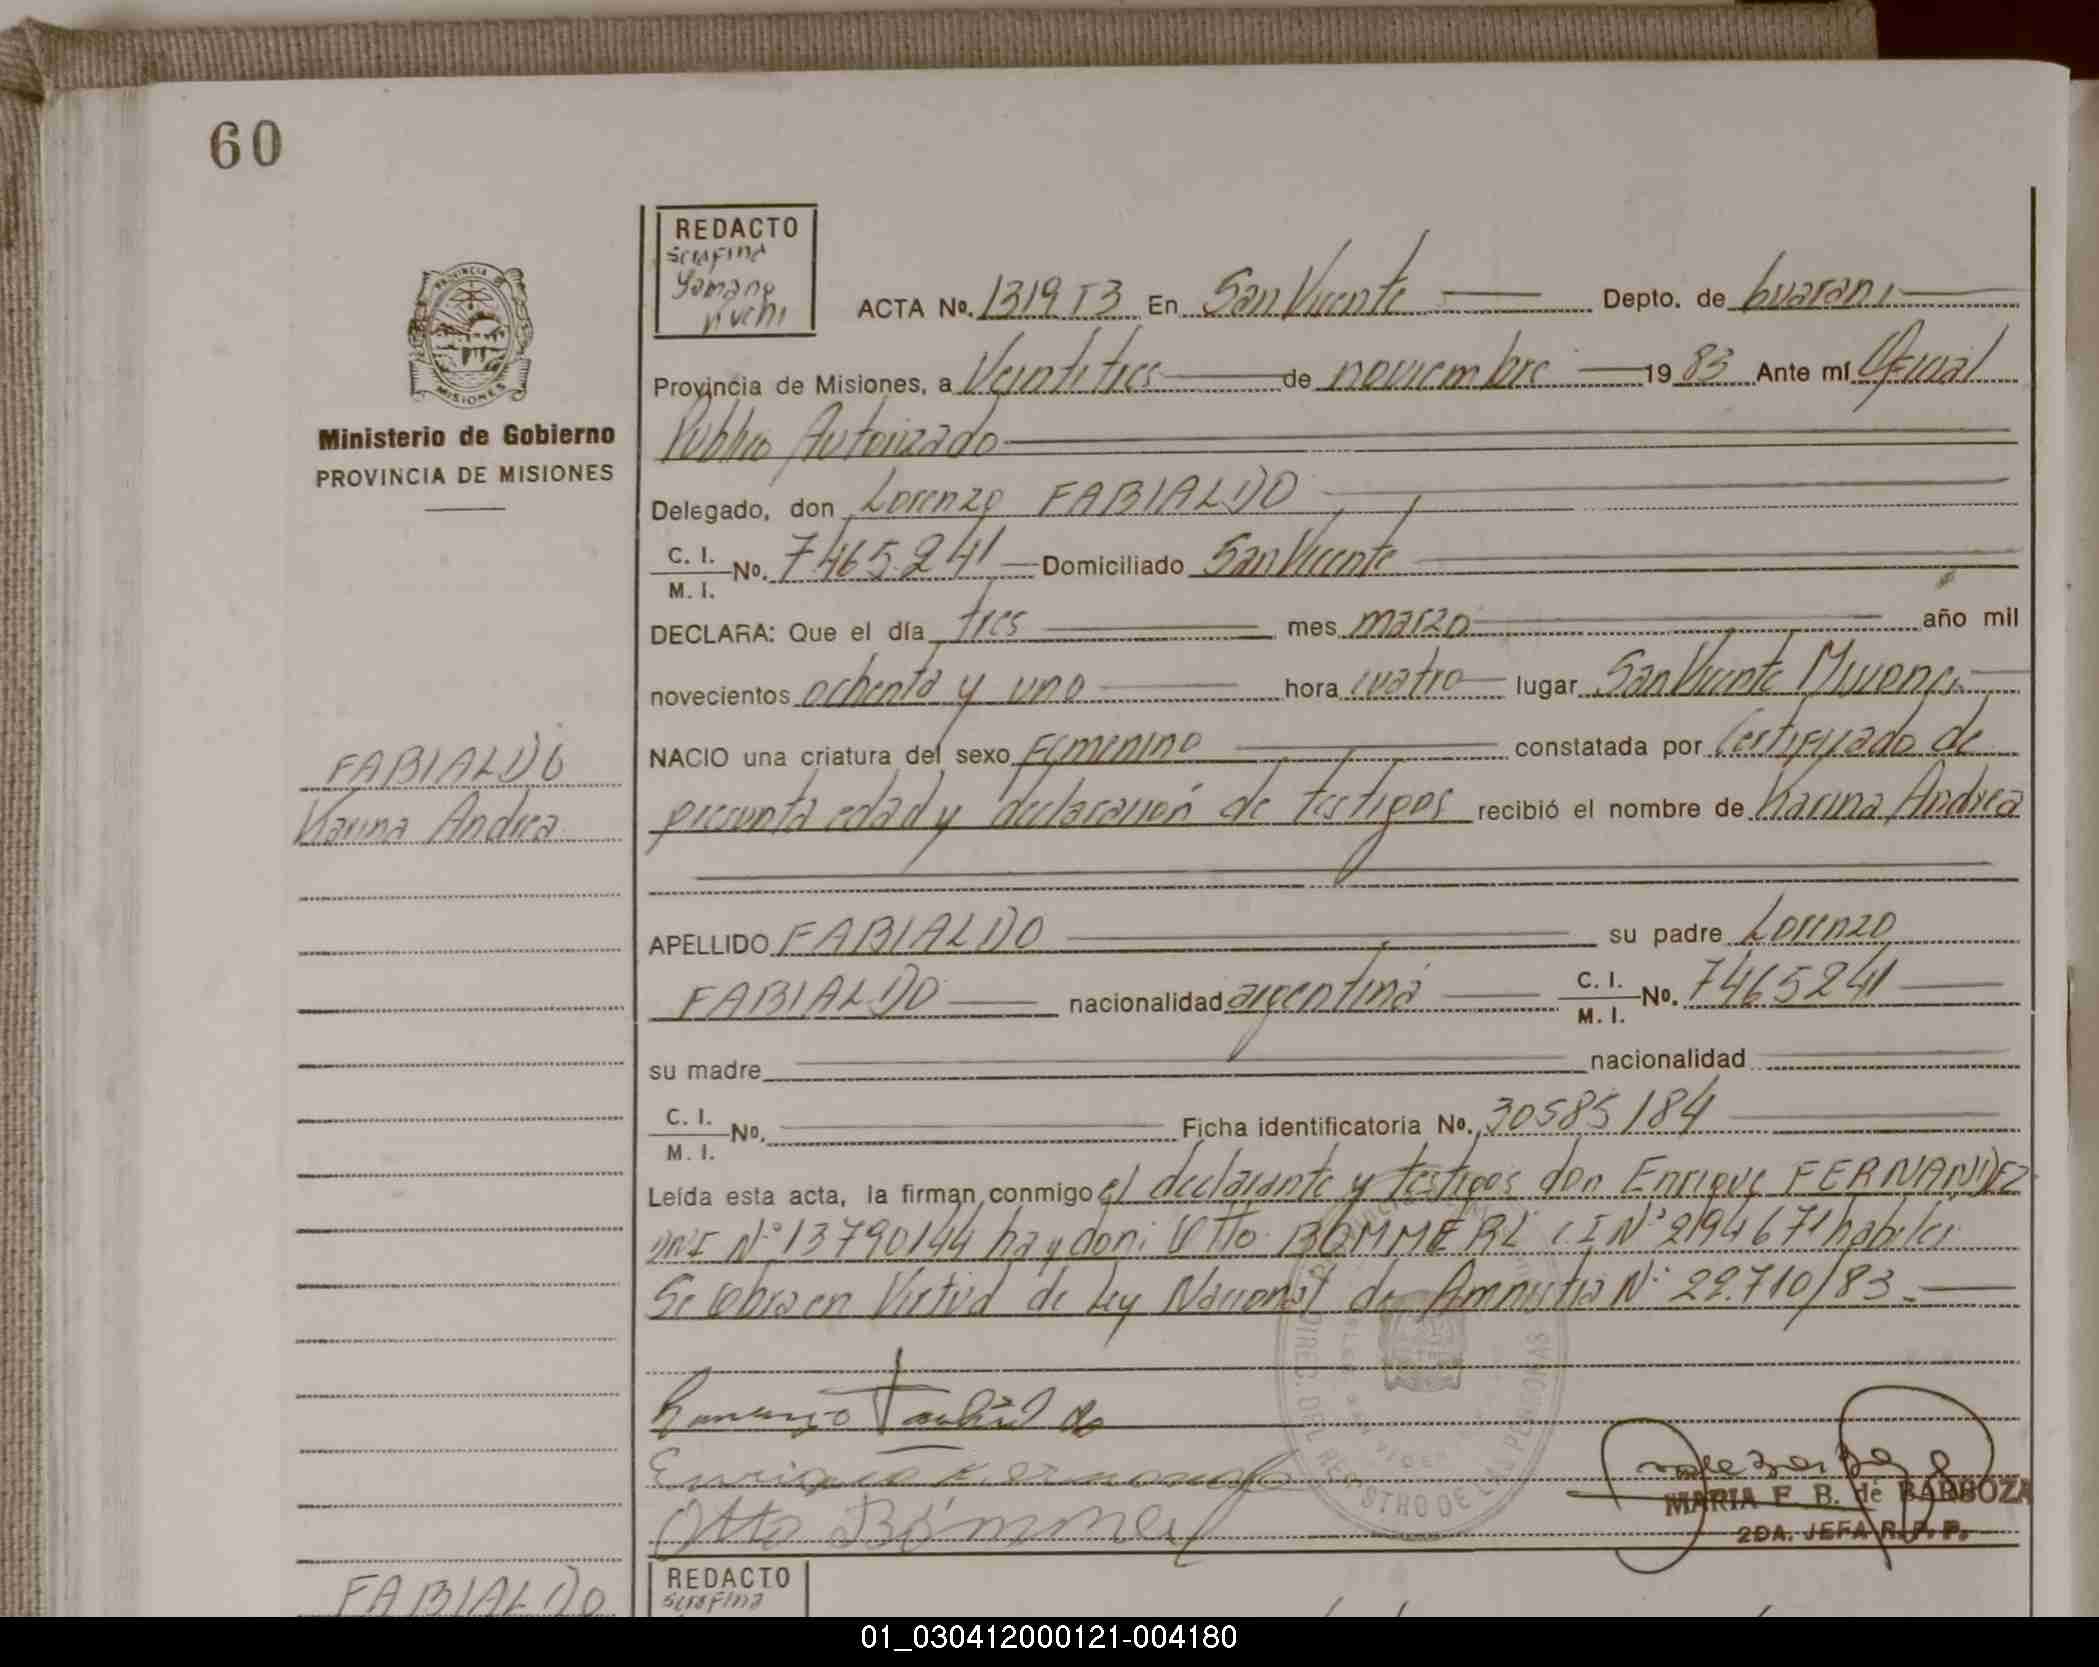 60
REDACTO
Serafina
ACTA No. 1319 T3 En San Vicente Depto. de Guarani
Provincia de Misiones, a Veintitres de noviembre 1983 Ante mí Oficial
Publico Autorizado
Ministerio de Gobierno
PROVINCIA DE MISIONES
Delegado, don Lorenzo FABIALDO
C. I.
M. I. No. 7465241 Domiciliado San Vicente
DECLARA: Que el día tres mes marzo año mil
novecientos ochenta y uno hora cuatro lugar San Vicente Misiones
NACIO una criatura del sexo Femenino constatada por Certificado de
presunta edad y declaracion de testigos recibió el nombre de Karina Andrea
FABIALDO
Karina Andrea
APELLIDO FABIALDO su padre Lorenzo
FABIALDO nacionalidad argentina C. I.
M. I. No. 7465241
su madre nacionalidad
C. I.
M. I. No. Ficha identificatoria No. 30585184
Leída esta acta, la firman conmigo el declarante y testigos don Enrique FERNANDEZ
DNI Nº 13790144 Otto CI Nº 219467 habiles
Se labra en Virtud de Ley Nacional de Amnistia Nº 22.710/83.
Otto
DIREC. DEL REGISTRO DE LAS PERSONAS
MARIA E. B. de BARBOZA
2DA. JEFA R. P. P.
FABIALDO
REDACTO
Serafina
01_030412000121-004180